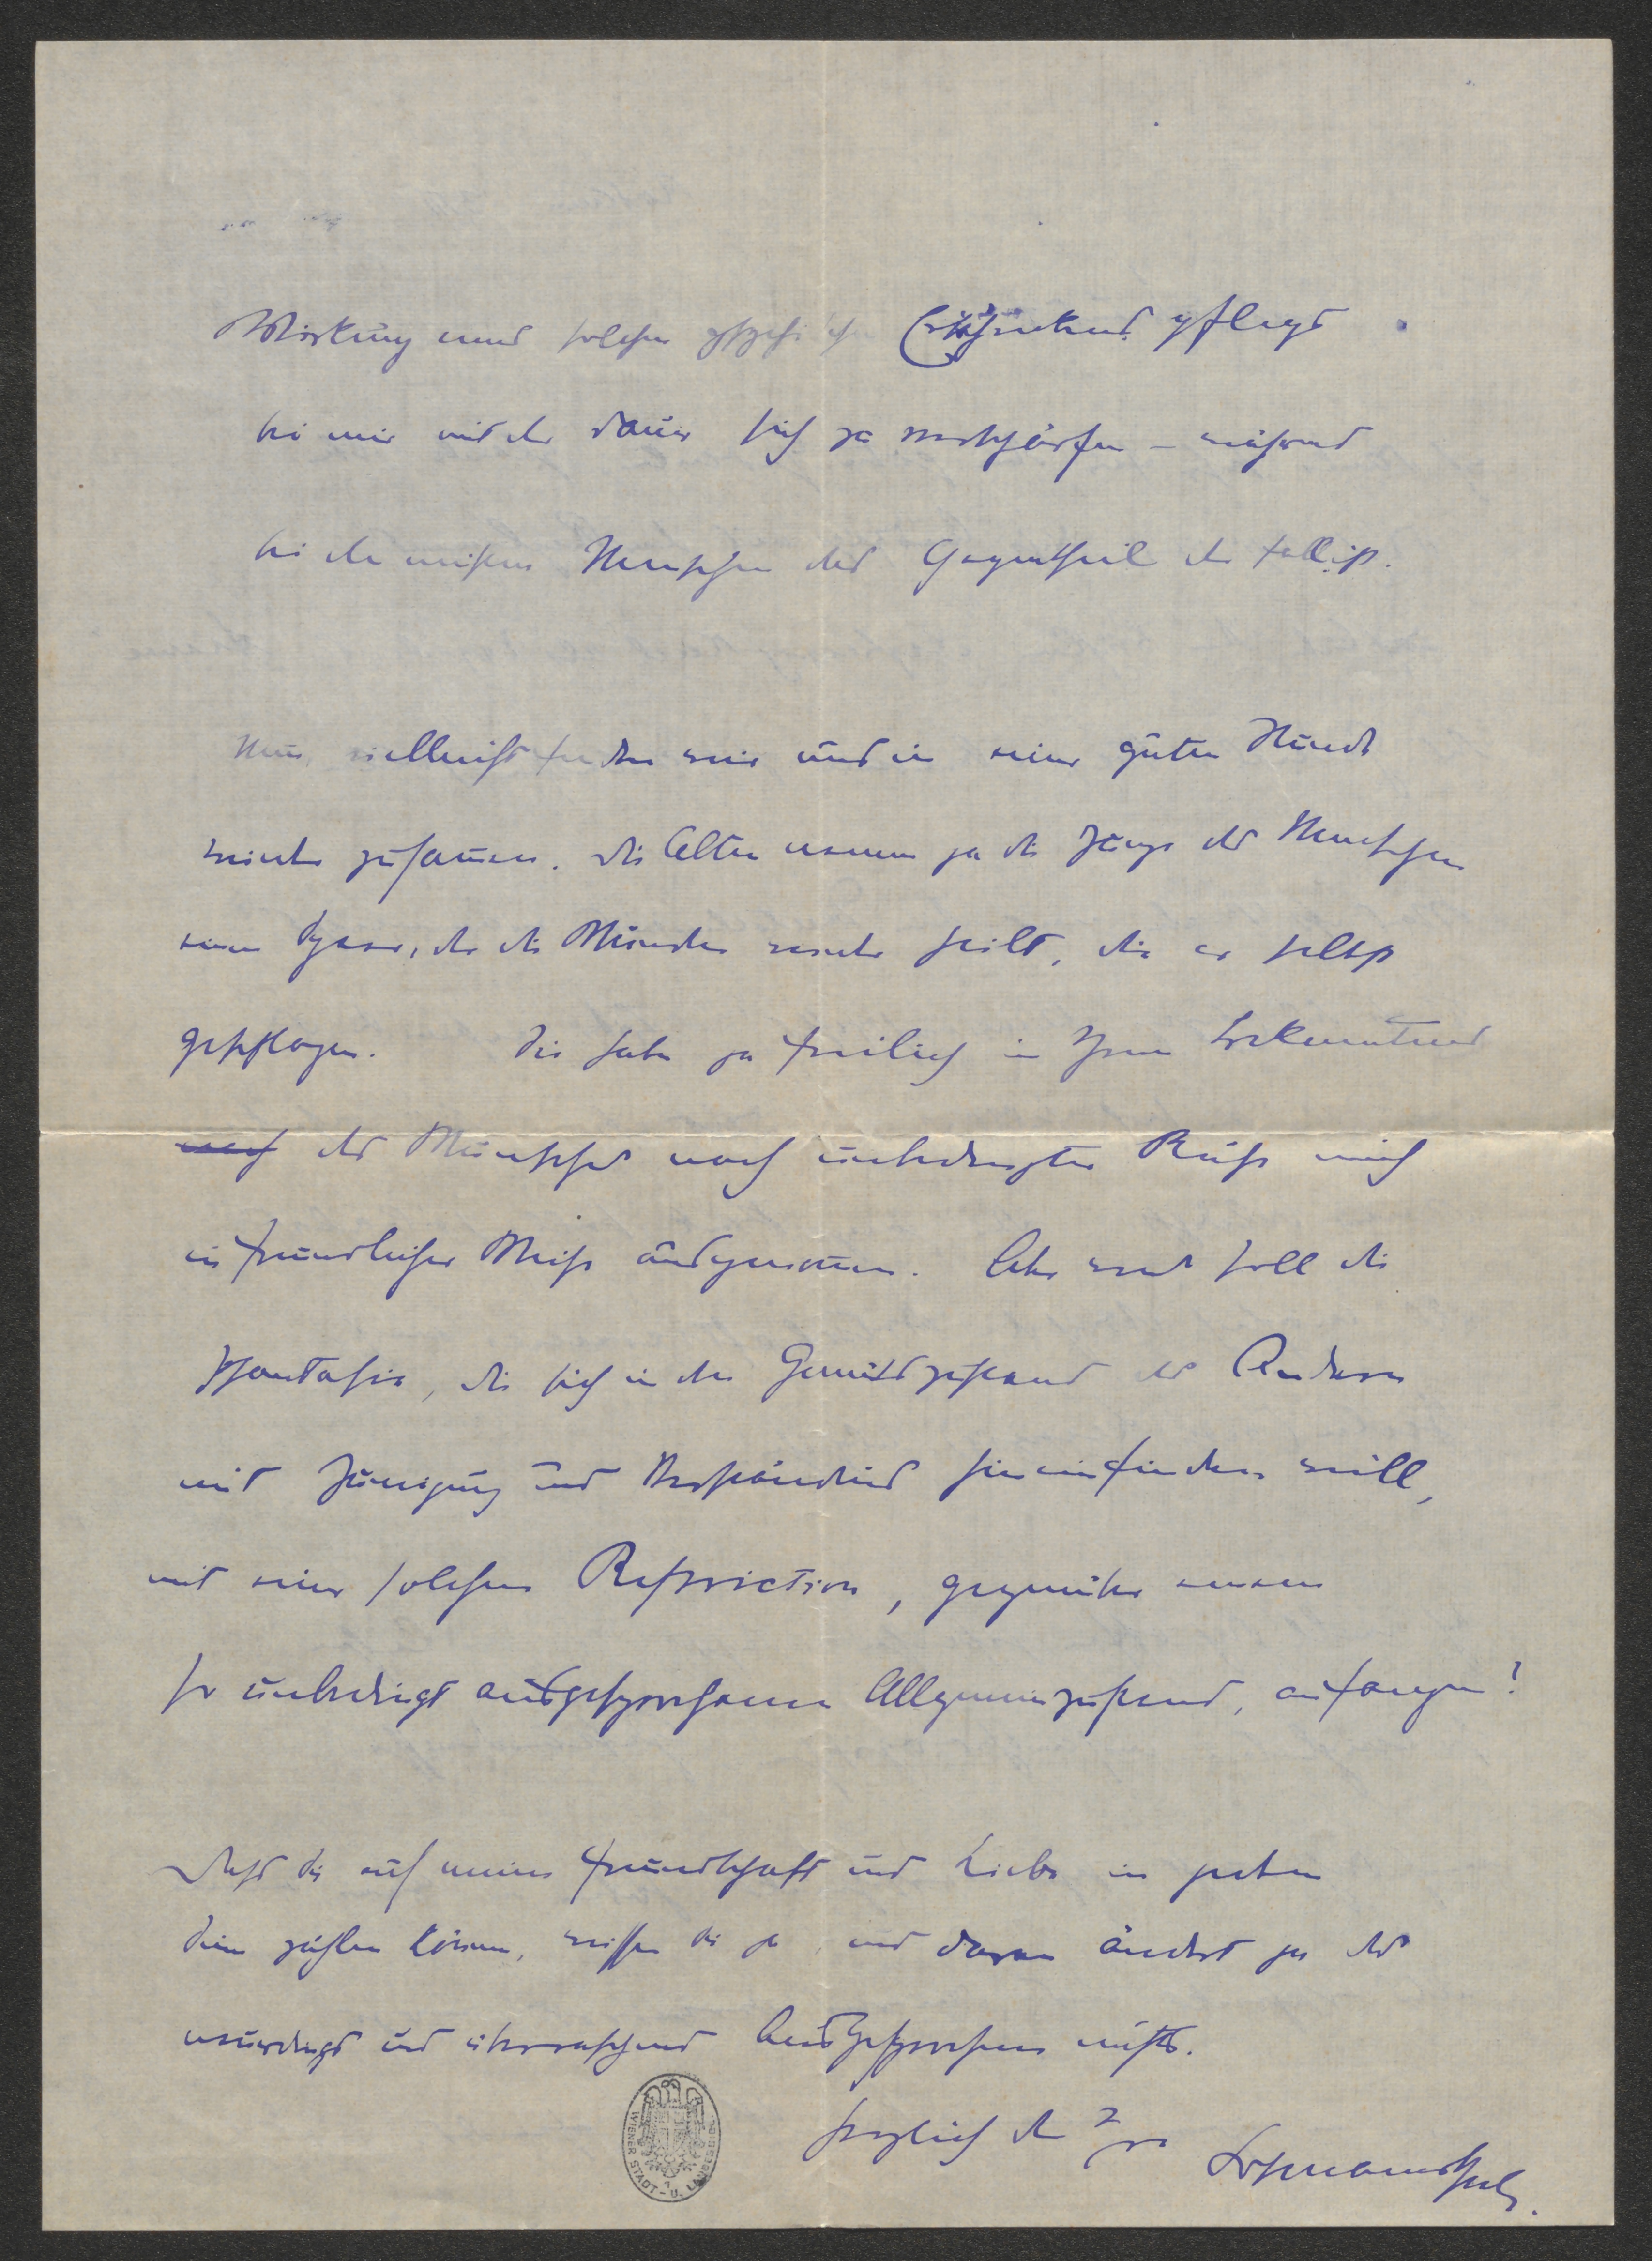 Wirkung eines solchen Erschreckens pflegt
bei mir mit der Dauer sich zu verschärfen – während
bei den meisten Menschen das Gegentheil der Fall ist.
Nun, vielleicht finden wir uns in einer guten Stunde
wieder zusammen. Die Alten nennen ja die Zunge des Menschen
einen Speer, der die Wunden wieder heilt, die er selbst
geschlagen. Sie haben ja freilich in Ihrem Bekenntnis
des Wunsches nach unbedingter Ruhe mich
in freundlicher Weise ausgenommen. Aber was soll die
Phantasie, die sich in den Gemütszustand des Anderen
mit Zuneigung und Verständnis hineinfinden will,
mit einer solchen Restriction, gegenüber einem
so unbedingt ausgesprochenen Allgemeinzustand, anfangen?
Dass Sie auf meine Freundschaft und Liebe in jedem
Sinn zählen können, wissen Sie ja, und daran ändert ja das
unbedingt und überraschend Ausgesprochene nichts.
herzlich der Ihre Hofmannsthal.
WIENER STADT- U. LANDESBIBL.